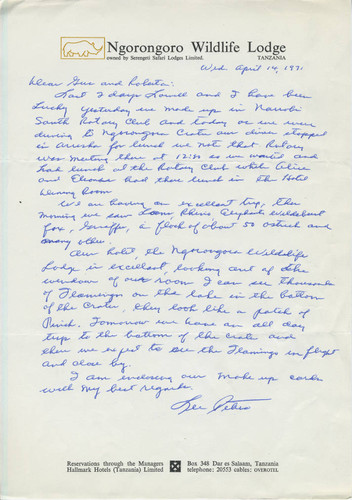 Ngorongoro Wildlife Lodge
owned by Serengeti Safari Lodges Limited.
TANZANIA
Wed April 14, 1971
Dear Gus and
Last 2 days Lowell and I have been
Lucky yesterday we made up in Nairobi
South Rotary Club and today as we were
driving to Ngorongoro Crater our driver stopped
in Arusha for lunch we not that Rotary
was meeting there at 12:30 so we waited and
had lunch at the Rotary Club while Alice
and Eleanor had there lunch in the Hotel
Dining Room
We are having an excellent trip, this
morning we saw Lions, Rhino, Elephants Wildebeest
fox, Giraffe, a flock of about 50 ostrich and
many other.
Our hotel, the Ngorongoro Wildlife
Lodge is excellent, looking out of the
window of our room I can see thousands
of Flamingo on the lake in the bottom
of the Crater, they look like a patch of
Pink. Tomorrow we have an all day
trip to the bottom of the crater and
then we expect to see the Flamingo in flight
and close by.
I am enclosing our make up cards
with my best regards.
Reservations through the Managers
Hallmark Hotels (Tanzania) Limited
Box 348 Dar es Salaam, Tanzania
telephone: 20553 cables: OVEROTEL